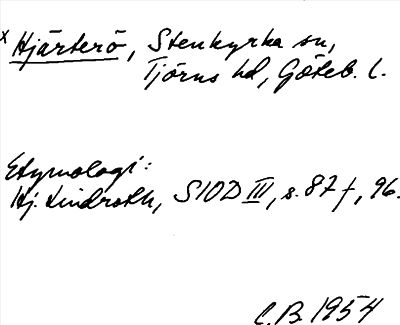 x Hjärterö, Stenkyrka sn,
Tjörns hd, Göteb. l.
Etymologi:
Hj. Lindroth, SIOD III, s. 87 f, 96.
C.B. 1954